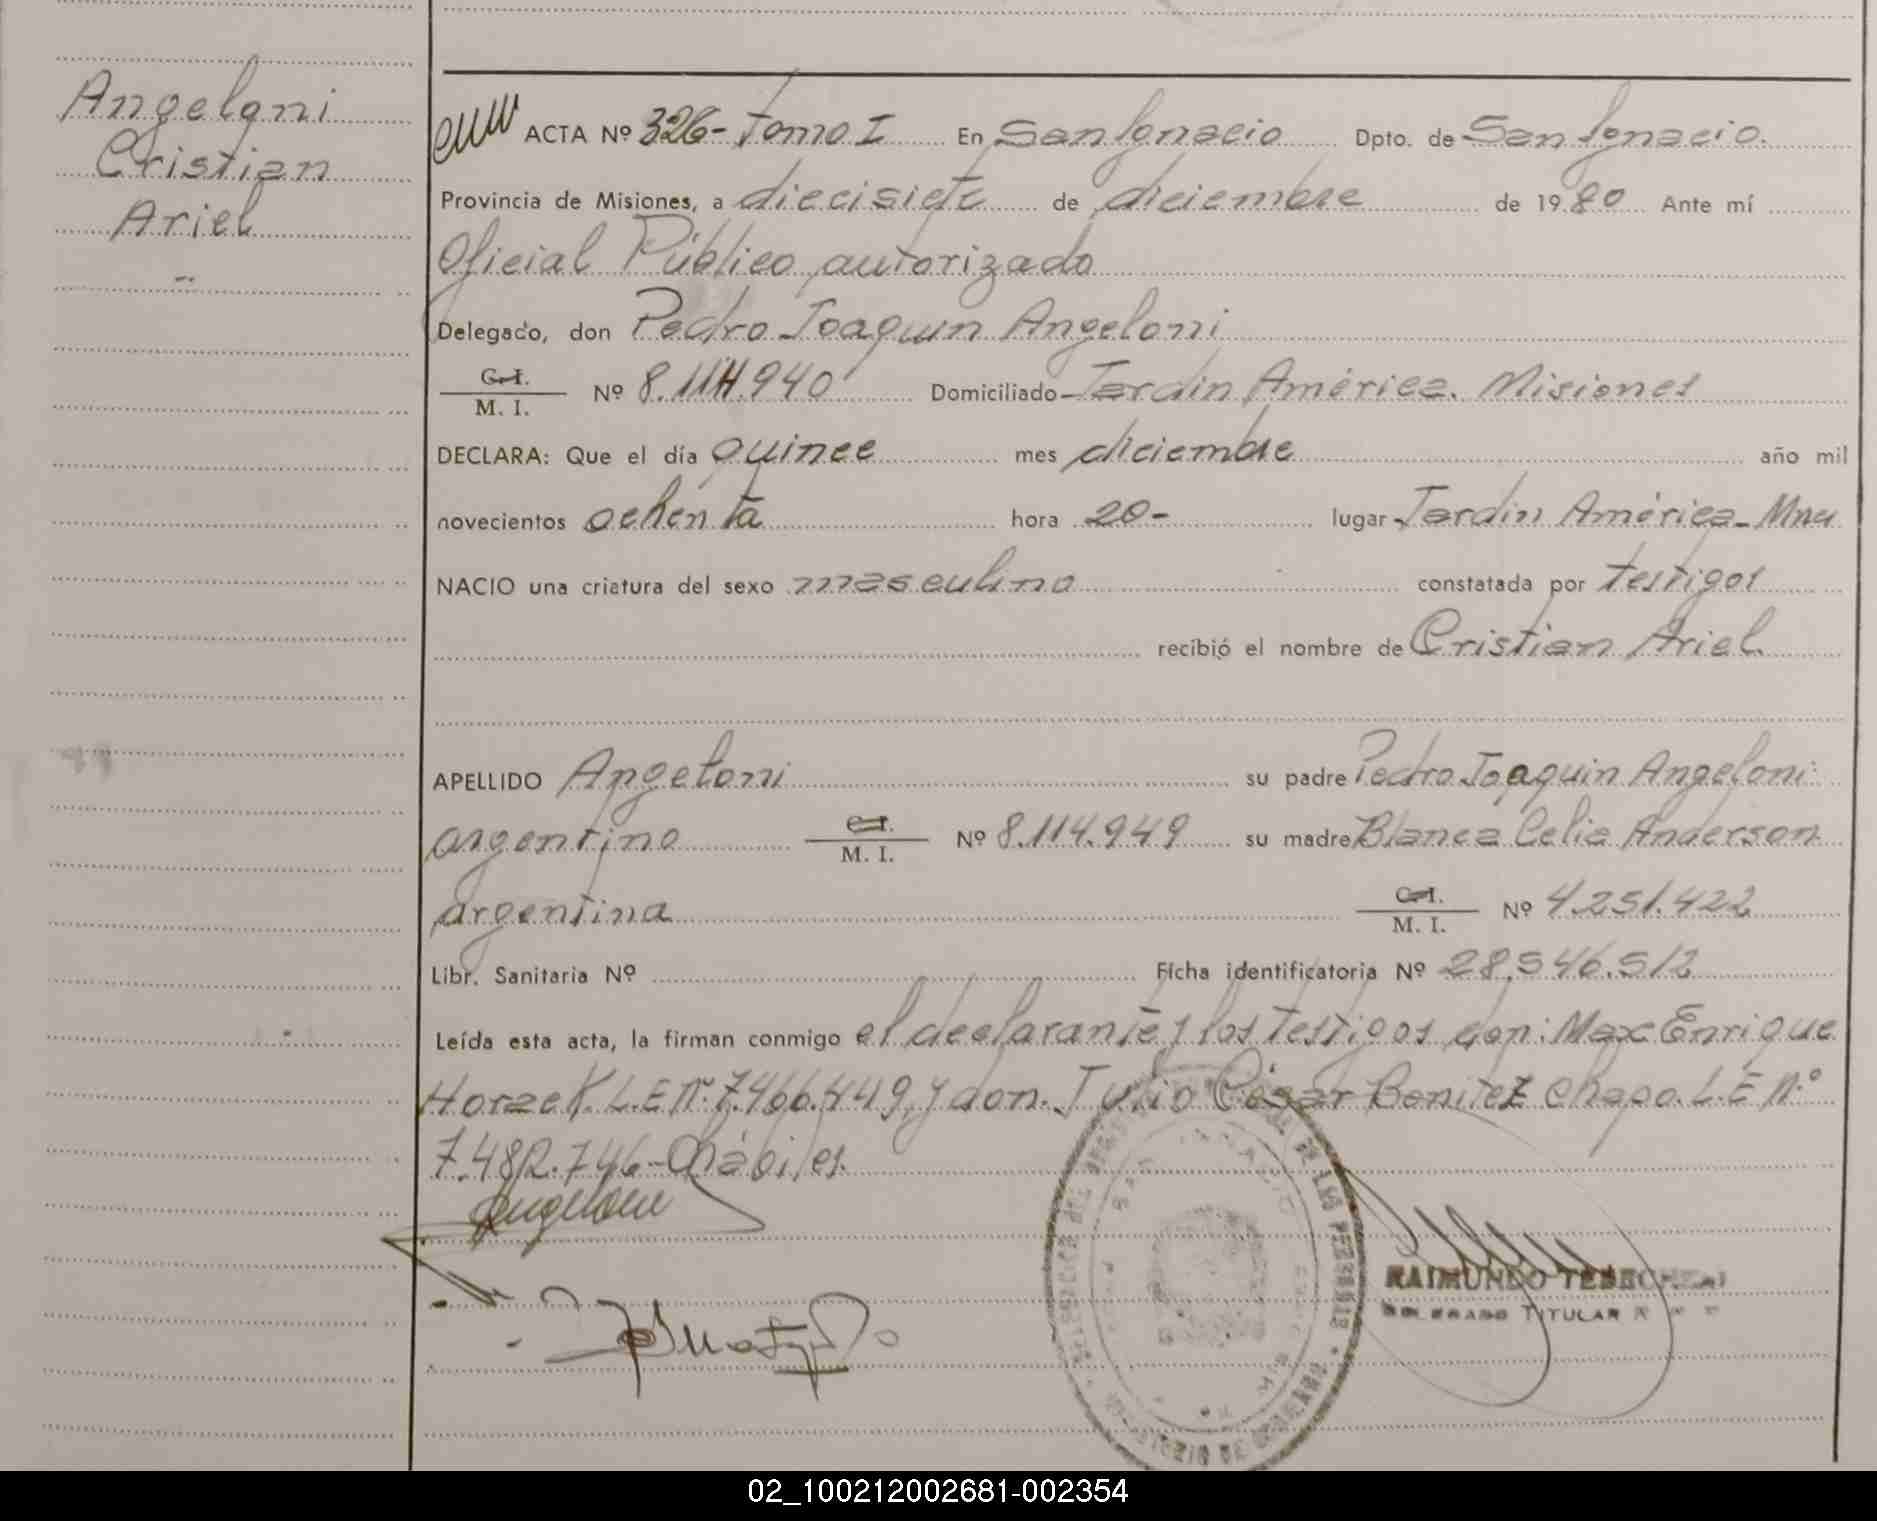 Angeloni
Cristian
Ariel
ACTA Nº 326- Tomo I En San Ignacio Dpto. de San Ignacio.
Provincia de Misiones, a diecisiete de diciembre de 1980 Ante mí
Oficial Público autorizado
Delegado, don Pedro Joaquin Angeloni
C. I.
M. I. Nº 8.114.940 Domiciliado Jardin América. Misiones
DECLARA: Que el día quince mes diciembre año mil
novecientos ochenta hora 20- lugar Jardin América-Mnes
NACIO una criatura del sexo masculino constatada por testigos
recibió el nombre de Cristian Ariel.
APELLIDO Angeloni su padre Pedro Joaquin Angeloni
argentino C. I.
M. I. Nº 8.114.949 su madre Blanca Celia Anderson
argentina C. I.
M. I. Nº 4.251.422
Libr. Sanitaria Nº Ficha identificatoria Nº 28.546.512
Leída esta acta, la firman conmigo el declarante y los testigos don: Max Enrique
L.E Nº 7.466.449, y don. Julio César Benitez Chapo. L.E Nº
746- hábiles.
Angeloni
RAIMUNDO
DELEGADO TITULAR
02_100212002681-002354